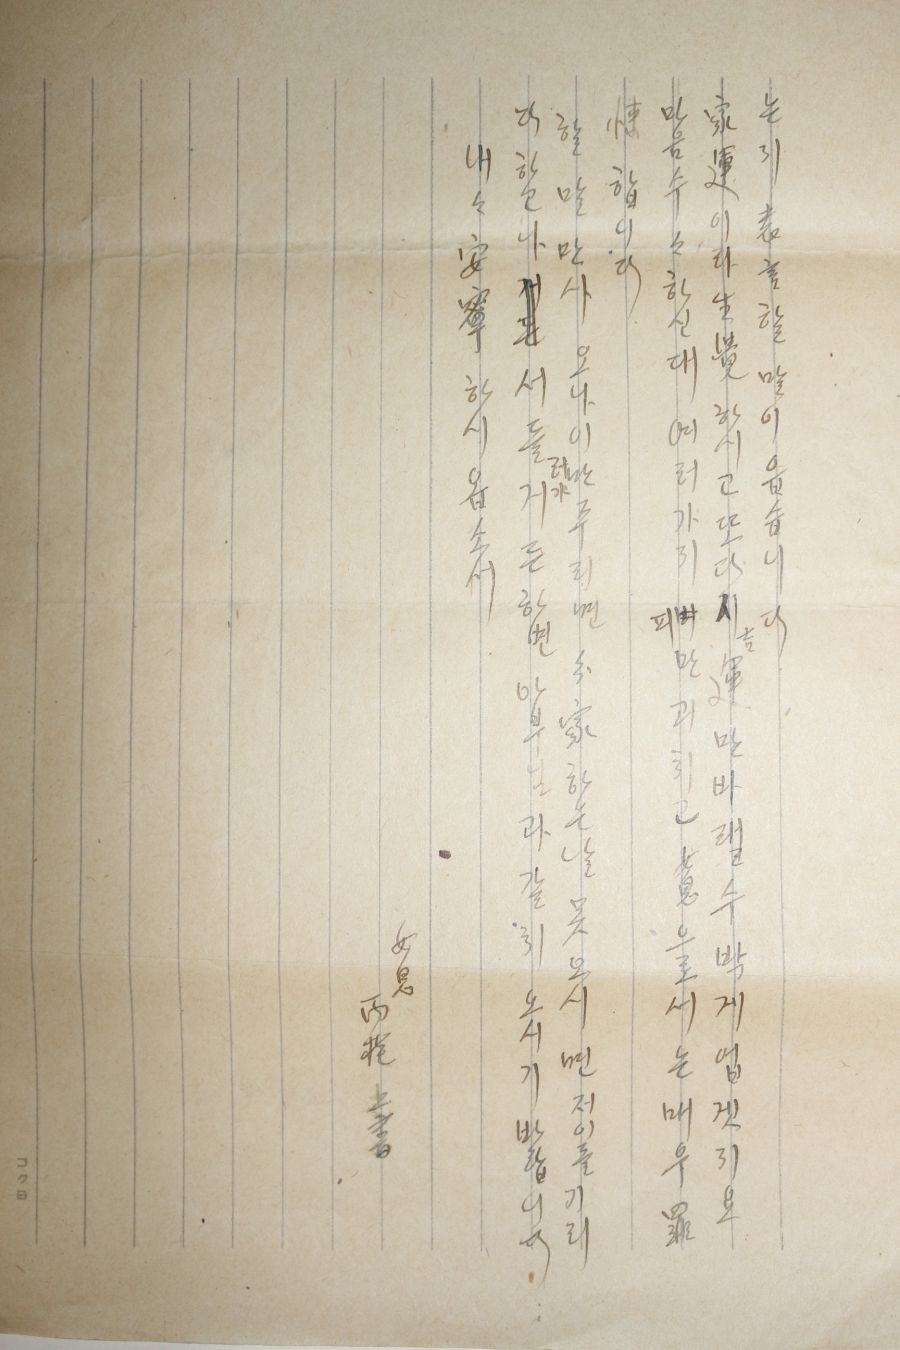 는지 表言할 말이 읍습니다
家運이라 生覺하시고 또다시 吉運만 바랠수박게 업겟지요
마음 수々하신대 여러가지 피버만 끼치고 女息으로서는 매우 羅
悚합니다
할 말 만사오나 이만 주리며 分家하는 날 못 오시면 저이들 기대
다 할 서들 거든 한번 아부님과 갗치 오시기 바랍니다
내々 安寧하시옵소서
女息
丙 上書
コクヨ